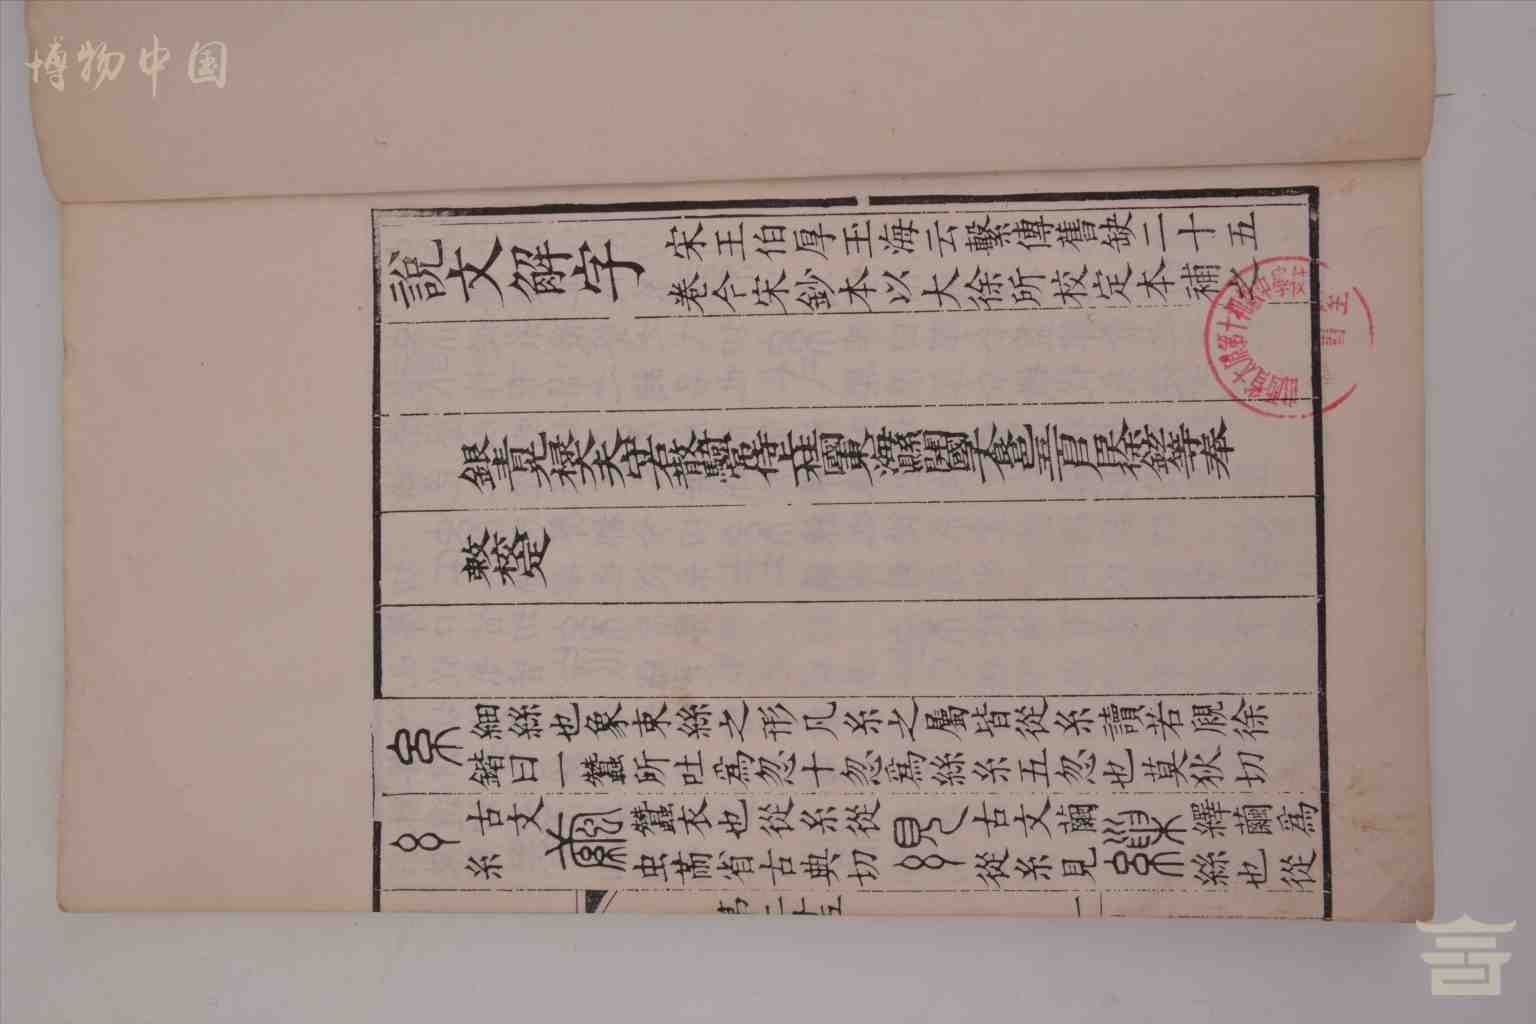 博物中国
說文解字 宋王伯厚玉海云繫傳舊缺二十五
卷今宋鈔本以大徐所校定本補之
銀青光祿大夫守右散騎常侍上柱國東海縣開國子食邑五百戶臣徐鉉等奉
敕校定
糸 細絲也象束絲之形凡糸之屬皆從糸讀若覛徐
鍇曰一蠶所吐爲忽十忽爲絲糸五忽也莫狄切
古文糸 繭 蠶衣也從糸從虫芇省古典切 絸 古文繭從糸見 繅 繹繭爲絲也從
第二十五 一